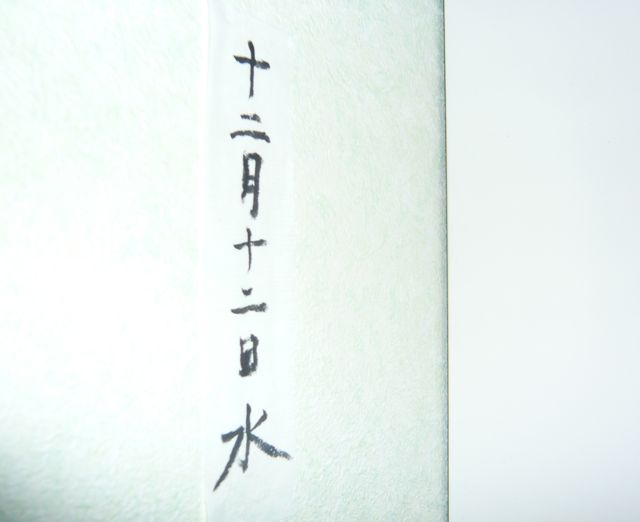 十二月十二日水